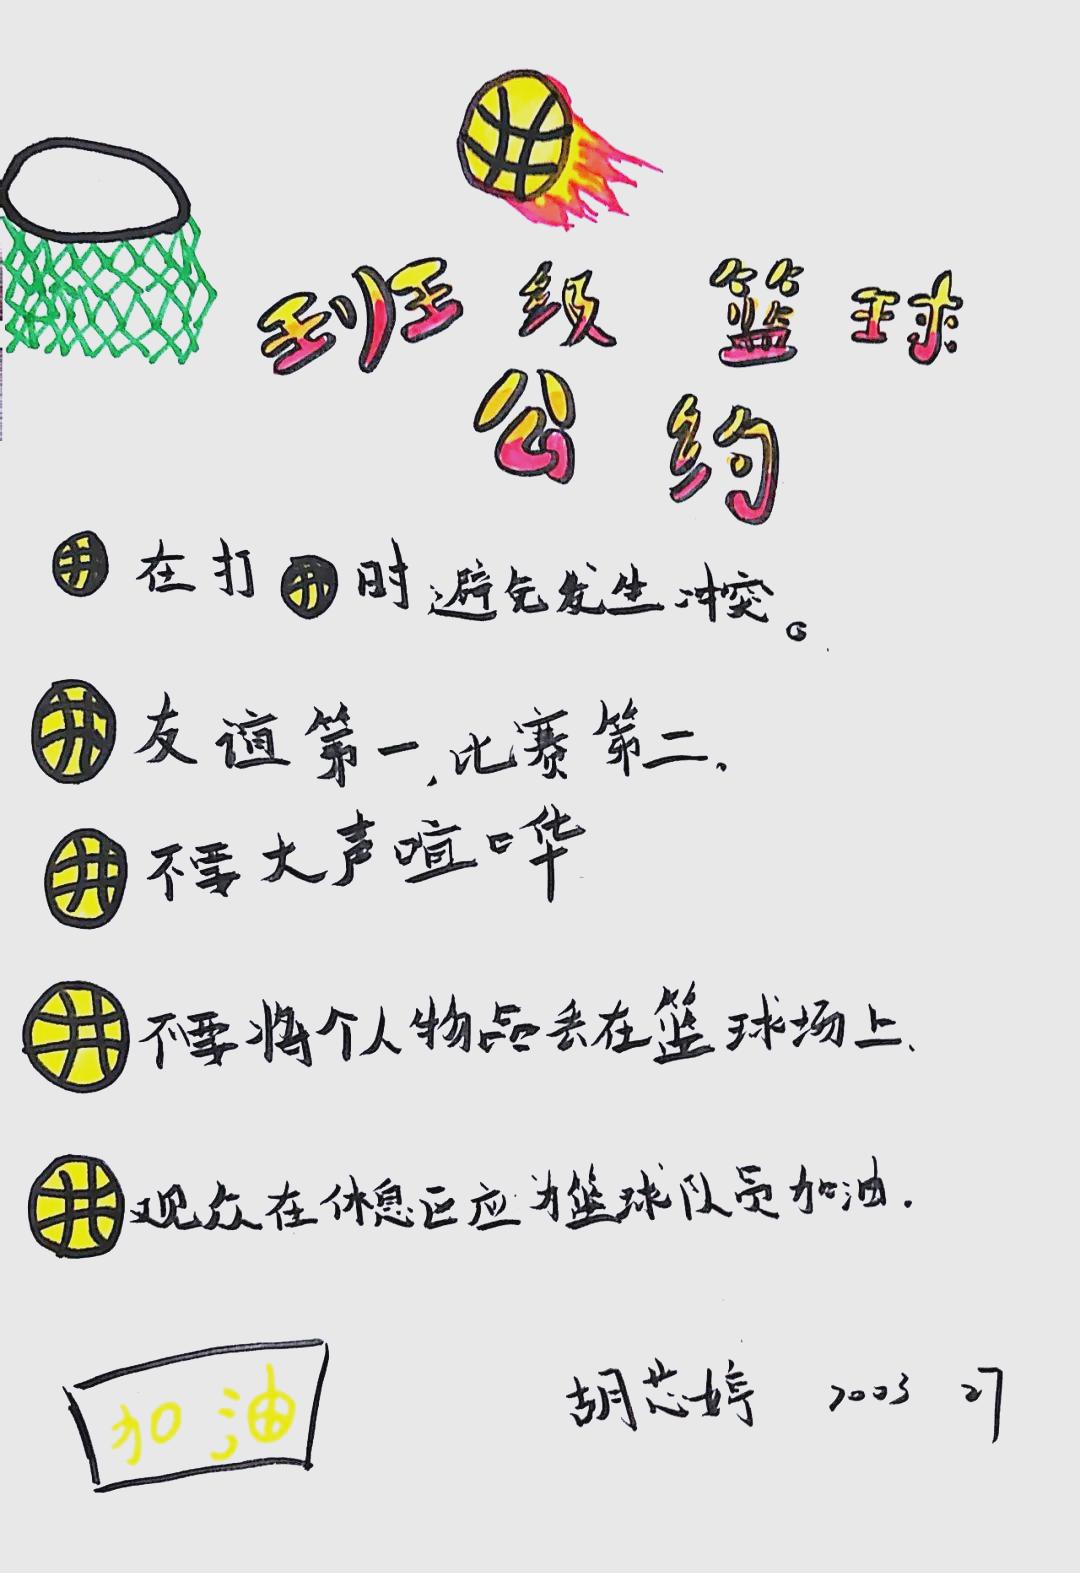 班级篮球
公约
在打 时避免发生冲突。
友谊第一,比赛第二、
不要大声喧哗
不要将个人物品丢在篮球场上、
观众在休息区应为篮球队员加油.
加油
胡芯婷 2003 27